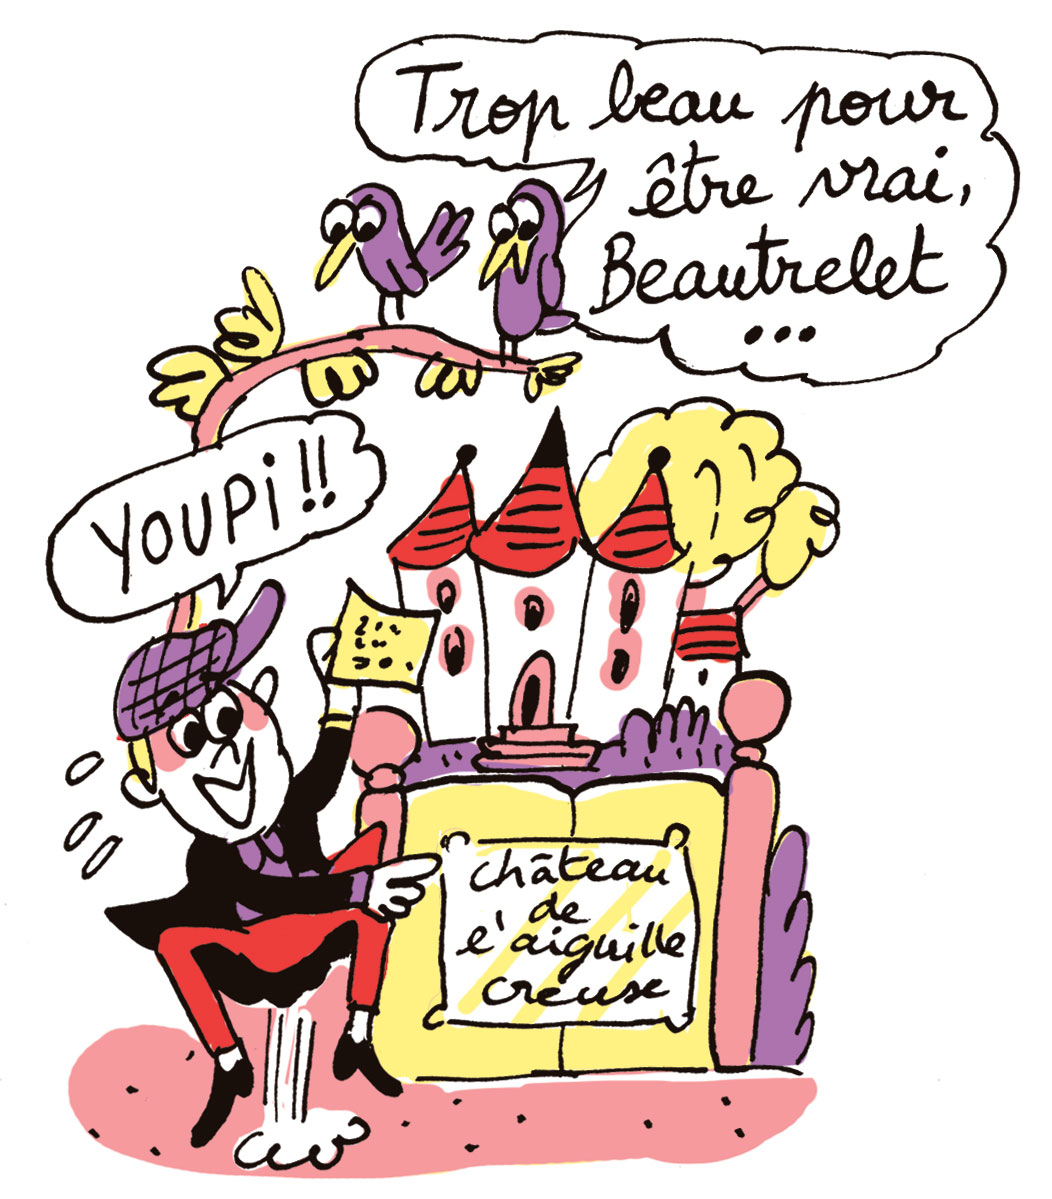 Trop beau pour
être vrai,
Beautrelet
...
YOUPi!!
château
de
l'aiguille
creuse